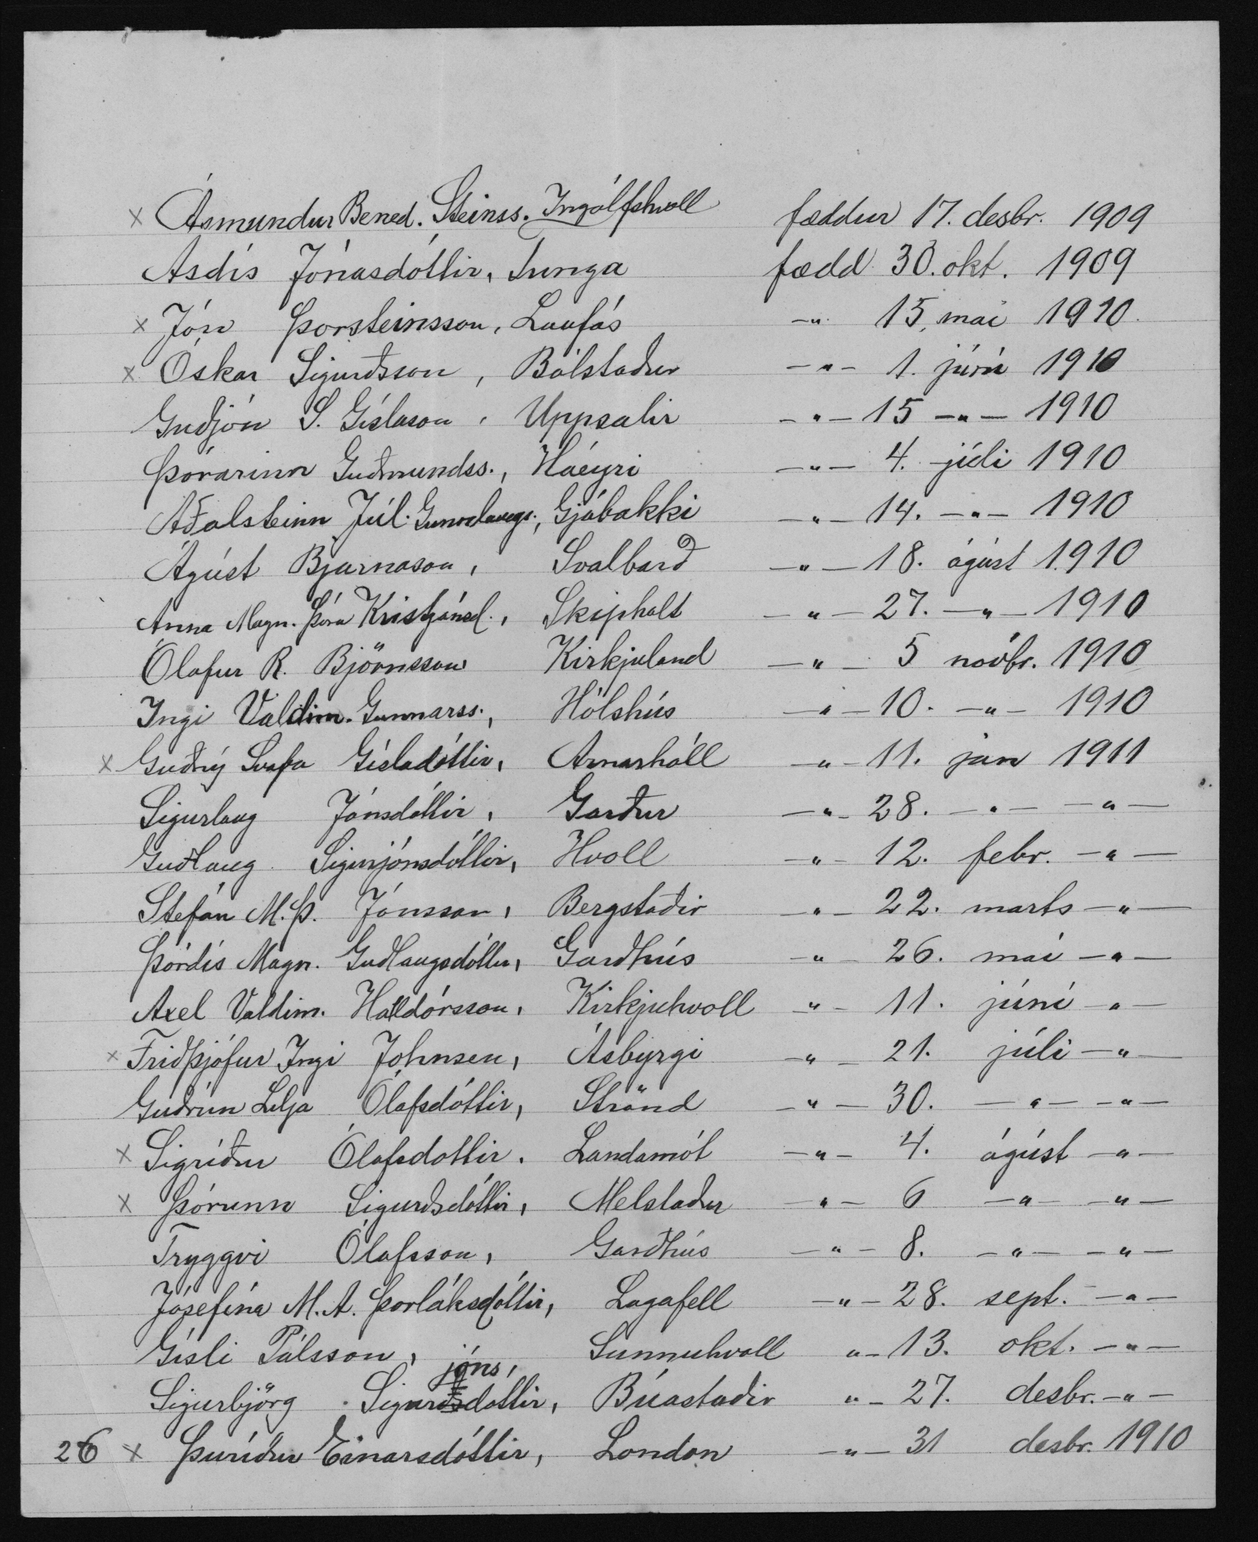 x Ásmundur Bened. Steinss. Ingólfshvoll fæddur 17. desbr. 1909
Ásdís Jónasdóttir, Tunga fædd 30. okt. 1909
x Jón Þorsteinsson, Laufás -"- 15. mai 1910
x Óskar Sigurðsson, Bólstaður -"- 1. júní 1910
Guðjón S. Gíslason, Uppsalir -"- 15 -"- 1910
Þórarinn Guðmundss., Háeyri -"- 4. júli 1910
Aðalsteinn Júl. Gunnlaugs., Gjábakki -"- 14. -"- 1910
Ágúst Bjarnason, Svalbarð -"- 18. ágúst 1910
Anna Magn. Þóra Kristjánsd., Skipholt -"- 27. -"- 1910
Ólafur R. Björnsson Kirkjuland -"- 5 novbr. 1910
Ingi Valdim. Gunnarss., Hólshús -"- 10. -"- 1910
x Guðný Svafa Gísladóttir, Arnarhóll -"- 11. jan 1911
Sigurlaug Jónsdóttir, Garður -"- 28. -"- -"-
Guðlaug Sigurjónsdóttir, Hvoll -"- 12. febr. -"-
Stefán M.Þ. Jónsson, Bergstaðir -"- 22. marts -"-
Þórdís Magn. Guðlaugsdóttir, Garðhús -"- 26. mai -"-
Axel Valdim. Halldórsson, Kirkjuhvoll "- 11. júní -"-
x Friðþjófur Ingi Johnsen, Ásbyrgi -"- 21. júli -"-
Guðrún Lilja Ólafsdóttir, Strönd -"- 30. -"- -"-
x Sigríður Ólafsdóttir. Landamót -"- 4. ágúst -"-
x Þórunn Sigurðsdóttir, Melstaður -"- 6 -"- -"-
Tryggvi Ólafsson, Garðhús -"- 8. -"- -"-
Jósefína M.A. Þorláksdóttir, Lagafell -"- 28. sept. -"-
Gísli Pálsson, Sunnuhvoll "- 13. okt. -"-
jóns,
Sigurbjörg Sigurðsdóttir, Búastaðir "- 27. desbr. -"-
26 x Þuríður Einarsdóttir, London -"- 31 desbr. 1910